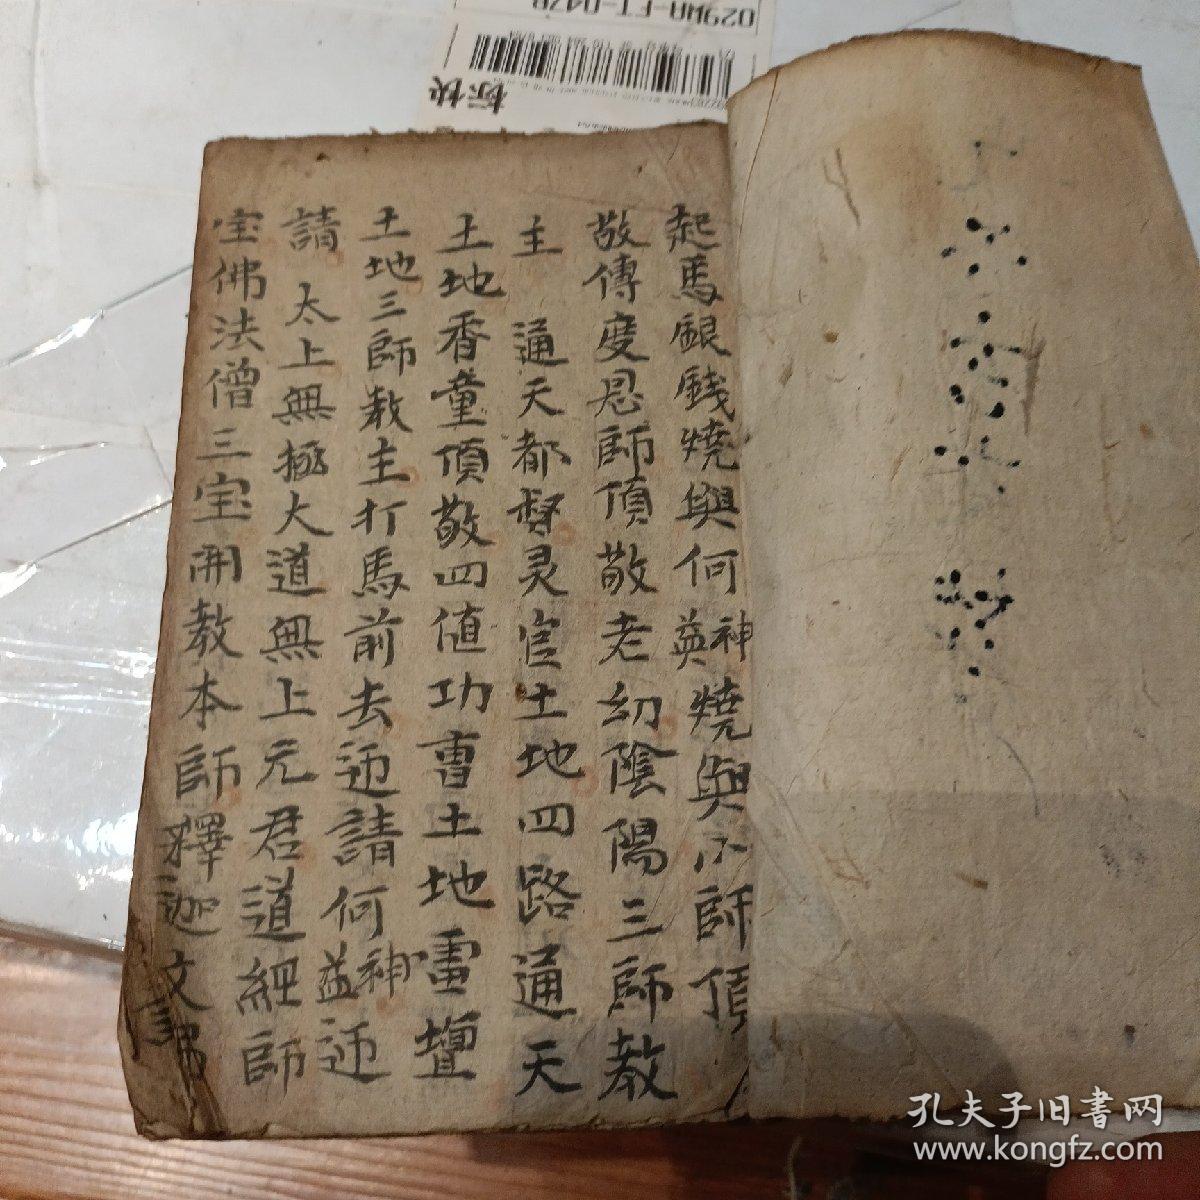 起馬銀錢燒與何神英燒與小師頂
敬傳度恩師頂敬老幻陰陽三師教
主 通天都督灵官土地四路通天
土地香童頂敬四值功曹土地雷壇
土地三師教主打馬前去迎請何神益迎
請 太上無極大道無上元君道經師
宝佛法僧三宝開教本師釋迦文佛
标快
029WA-FT-047B
孔夫子旧書网
www.kongfz.com